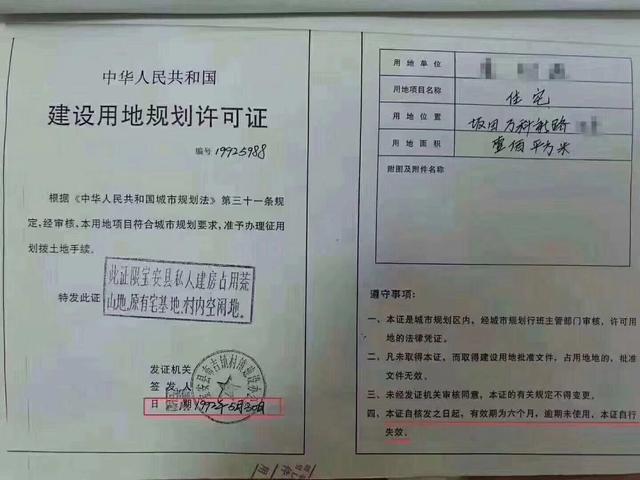 中华人民共和国
建设用地规划许可证
编号 19925988
根据《中华人民共和国城市规划法》第三十一条规
定,经审核,本用地项目符合城市规划要求,准予办理征用
划拨土地手续。
此证限宝安县私人建房占用荒
山地,原有宅基地,村内空闲地。
特发此证
发证机关
签发人
日期 1992年5月30日
用地单位
用地项目名称 住宅
用地位置 坂田万科新路
用地面积 壹佰平方米
附图及附件名称
遵守事项:
一、本证是城市规划区内,经城市规划行班主管部门审核,许可用
地的法律凭证。
二、凡未取得本证,而取得建设用地批准文件,占用地地的,批准
文件无效。
三、未经发证机关审核同意,本证的有关规定不得变更。
四、本证自核发之日起,有效期为六个月,逾期未使用,本证自行
失效。